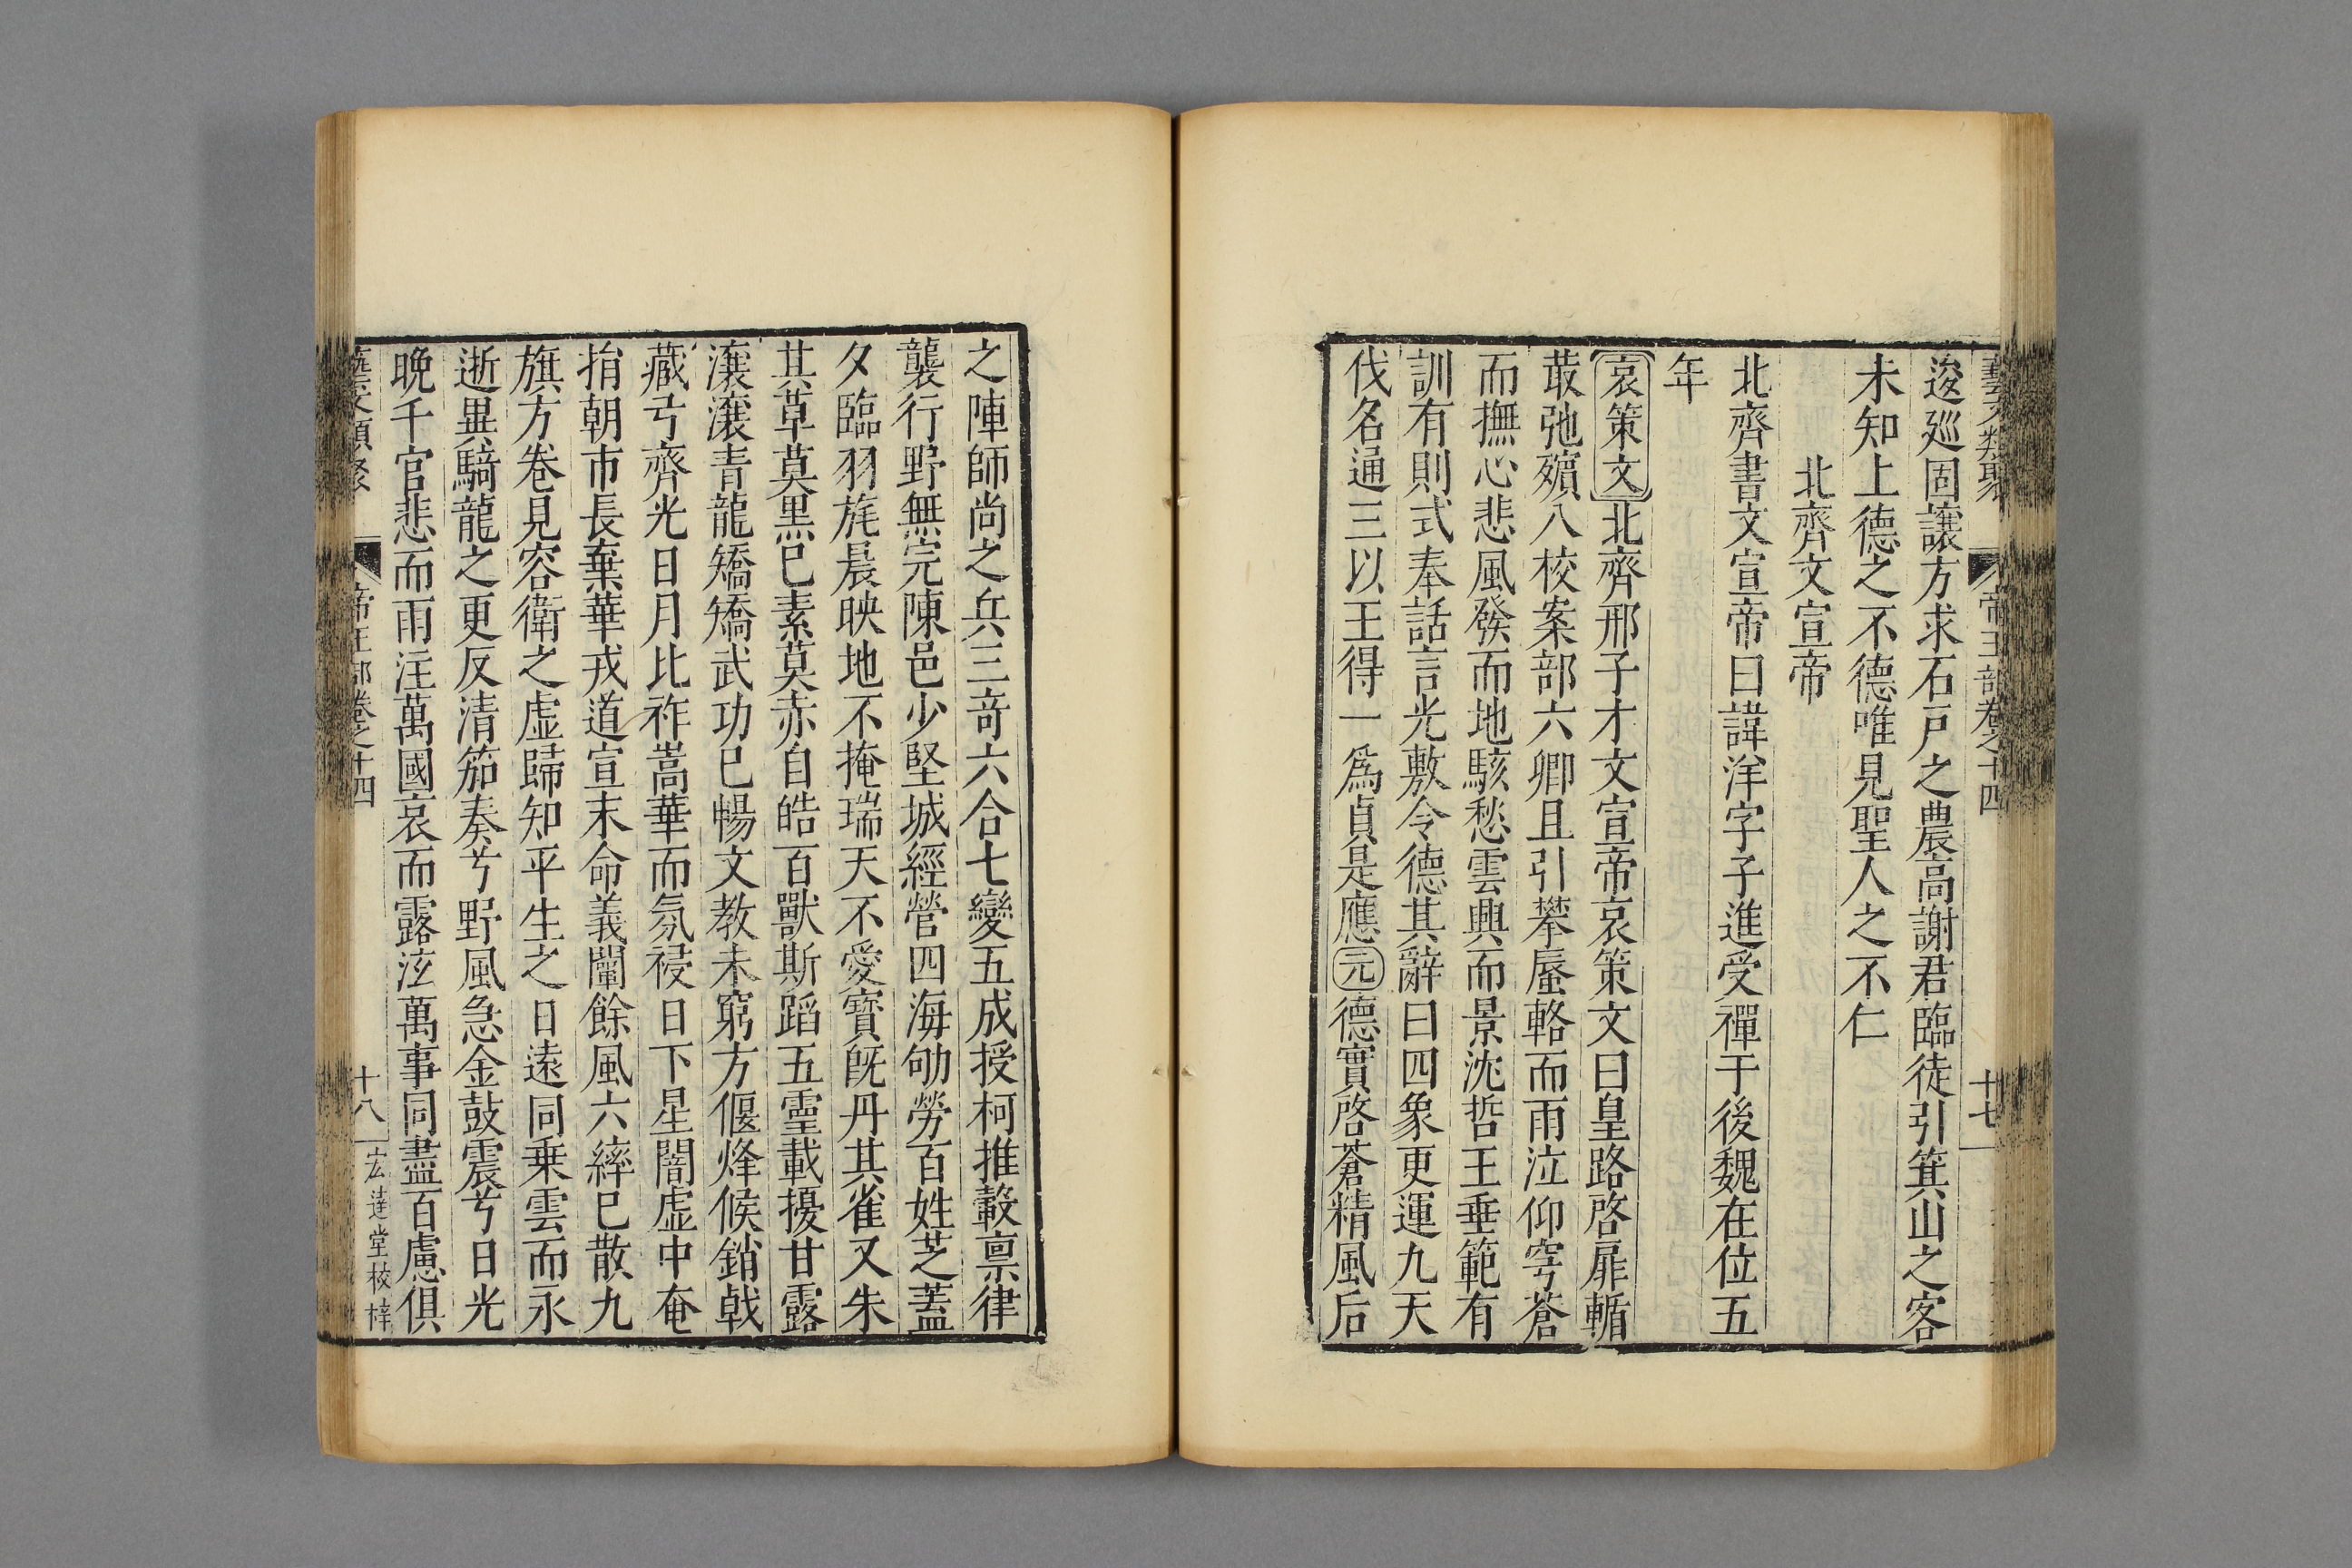 藝文類聚 帝王部卷之十四 十七
逡廵固讓方求石戸之農高謝君臨徒引箕山之客
未知上德之不德唯見聖人之不仁
北齊文宣帝
北齊書文宣帝曰諱洋字子進受禪于後魏在位五
年
哀策文北齊邢子才文宣帝哀策文曰皇路啓扉輴
菆弛殯八校案部六卿且引攀蜃輅而雨泣仰穹蒼
而撫心悲風發而地駭愁雲興而景沈哲王垂範有
訓有則式奉話言光敷令德其辭曰四象更運九天
伐名通三以王得一爲貞是應元德實啓蒼精風后
之陣師尚之兵三竒六合七變五成授柯推轂禀律
襲行野無完陳邑少堅城經營四海劬勞百姓芝蓋
夕臨羽旄晨映地不掩瑞天不愛寳旣丹其雀又朱
其草莫黒已素莫赤自皓百獸斯蹈五靈載擾甘露
瀼瀼青龍矯矯武功已暢文教未窮方偃烽候銷戟
藏弓齊光日月比祚嵩華而氛祲日下星闇虚中奄
捐朝市長棄華戎道宣末命義闡餘風六繂已散九
旗方卷見容衛之虚歸知平生之日遠同乗雲而永
逝異騎龍之更反清笳奏兮野風急金鼓震兮日光
晚千官悲而雨注萬國哀而露泫萬事同盡百慮俱
藝文類聚 帝王部卷之十四 十八 宏達堂校梓